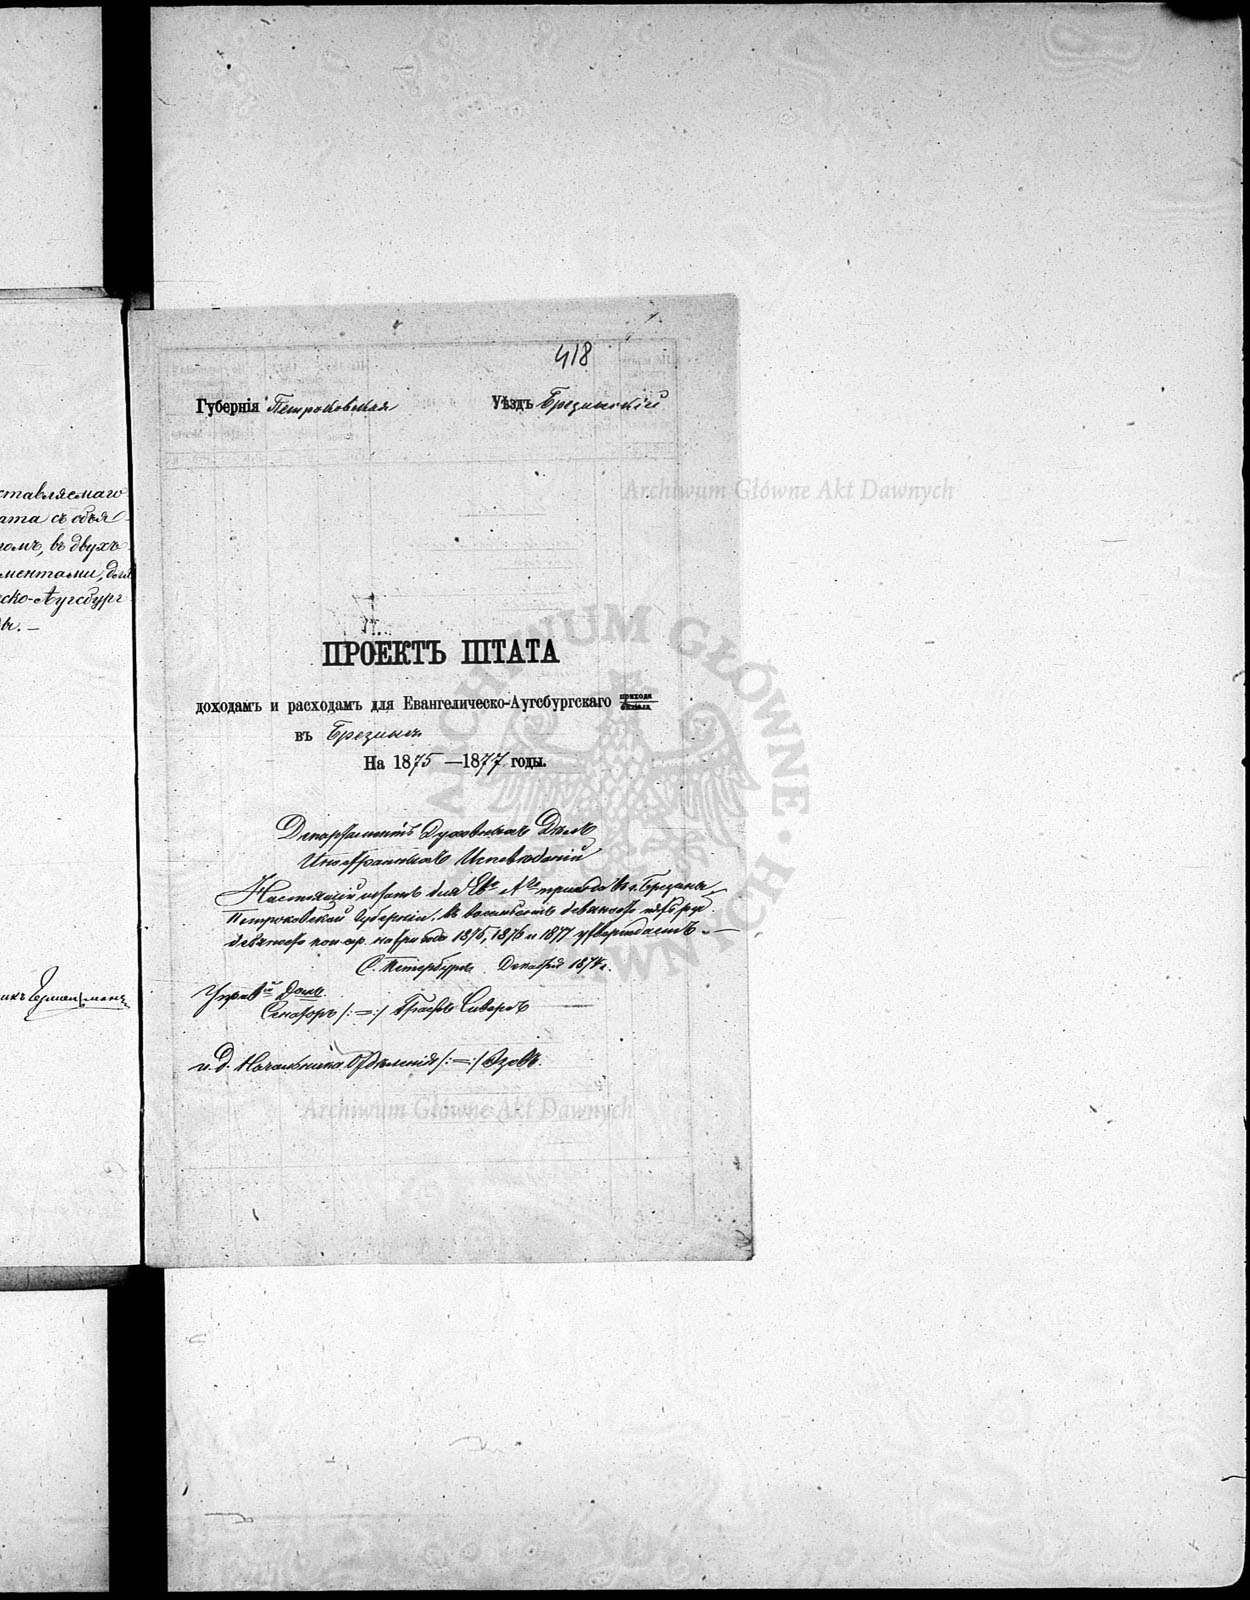 418
Губернія Петроковская Уѣздъ Брезинскій
ставляемаго
ата съ объя-
номъ, въ двухъ
ментами, для
ско-Аугсбург
ПРОЕКТЪ ШТАТА
доходамъ и расходамъ для Евангелическо-Аугсбургскаго прихода
филіала
въ Брезинѣ
На 1875—1877 годы.
Департаментъ Духовныхъ Дѣлъ
Иностранныхъ Исповѣданій
Настоящій штатъ для Ев. Аг. прихода въ г. Брезинѣ,
Петроковской Губерніи, въ восемьсотъ девяносто пять руб.
девяносто коп. ср. на три года 1875, 1876 и 1877 утверждаетъ.—
С. Петербургъ. Декабря 1874 г.
Сенаторъ /:—:/ Графъ Сиверсъ
и. д. Начальника Отдѣленія /:—:/
Archiwum Główne Akt Dawnych
ARCHIWUM GŁÓWNE AKT DAWNYCH
Archiwum Główne Akt Dawnych